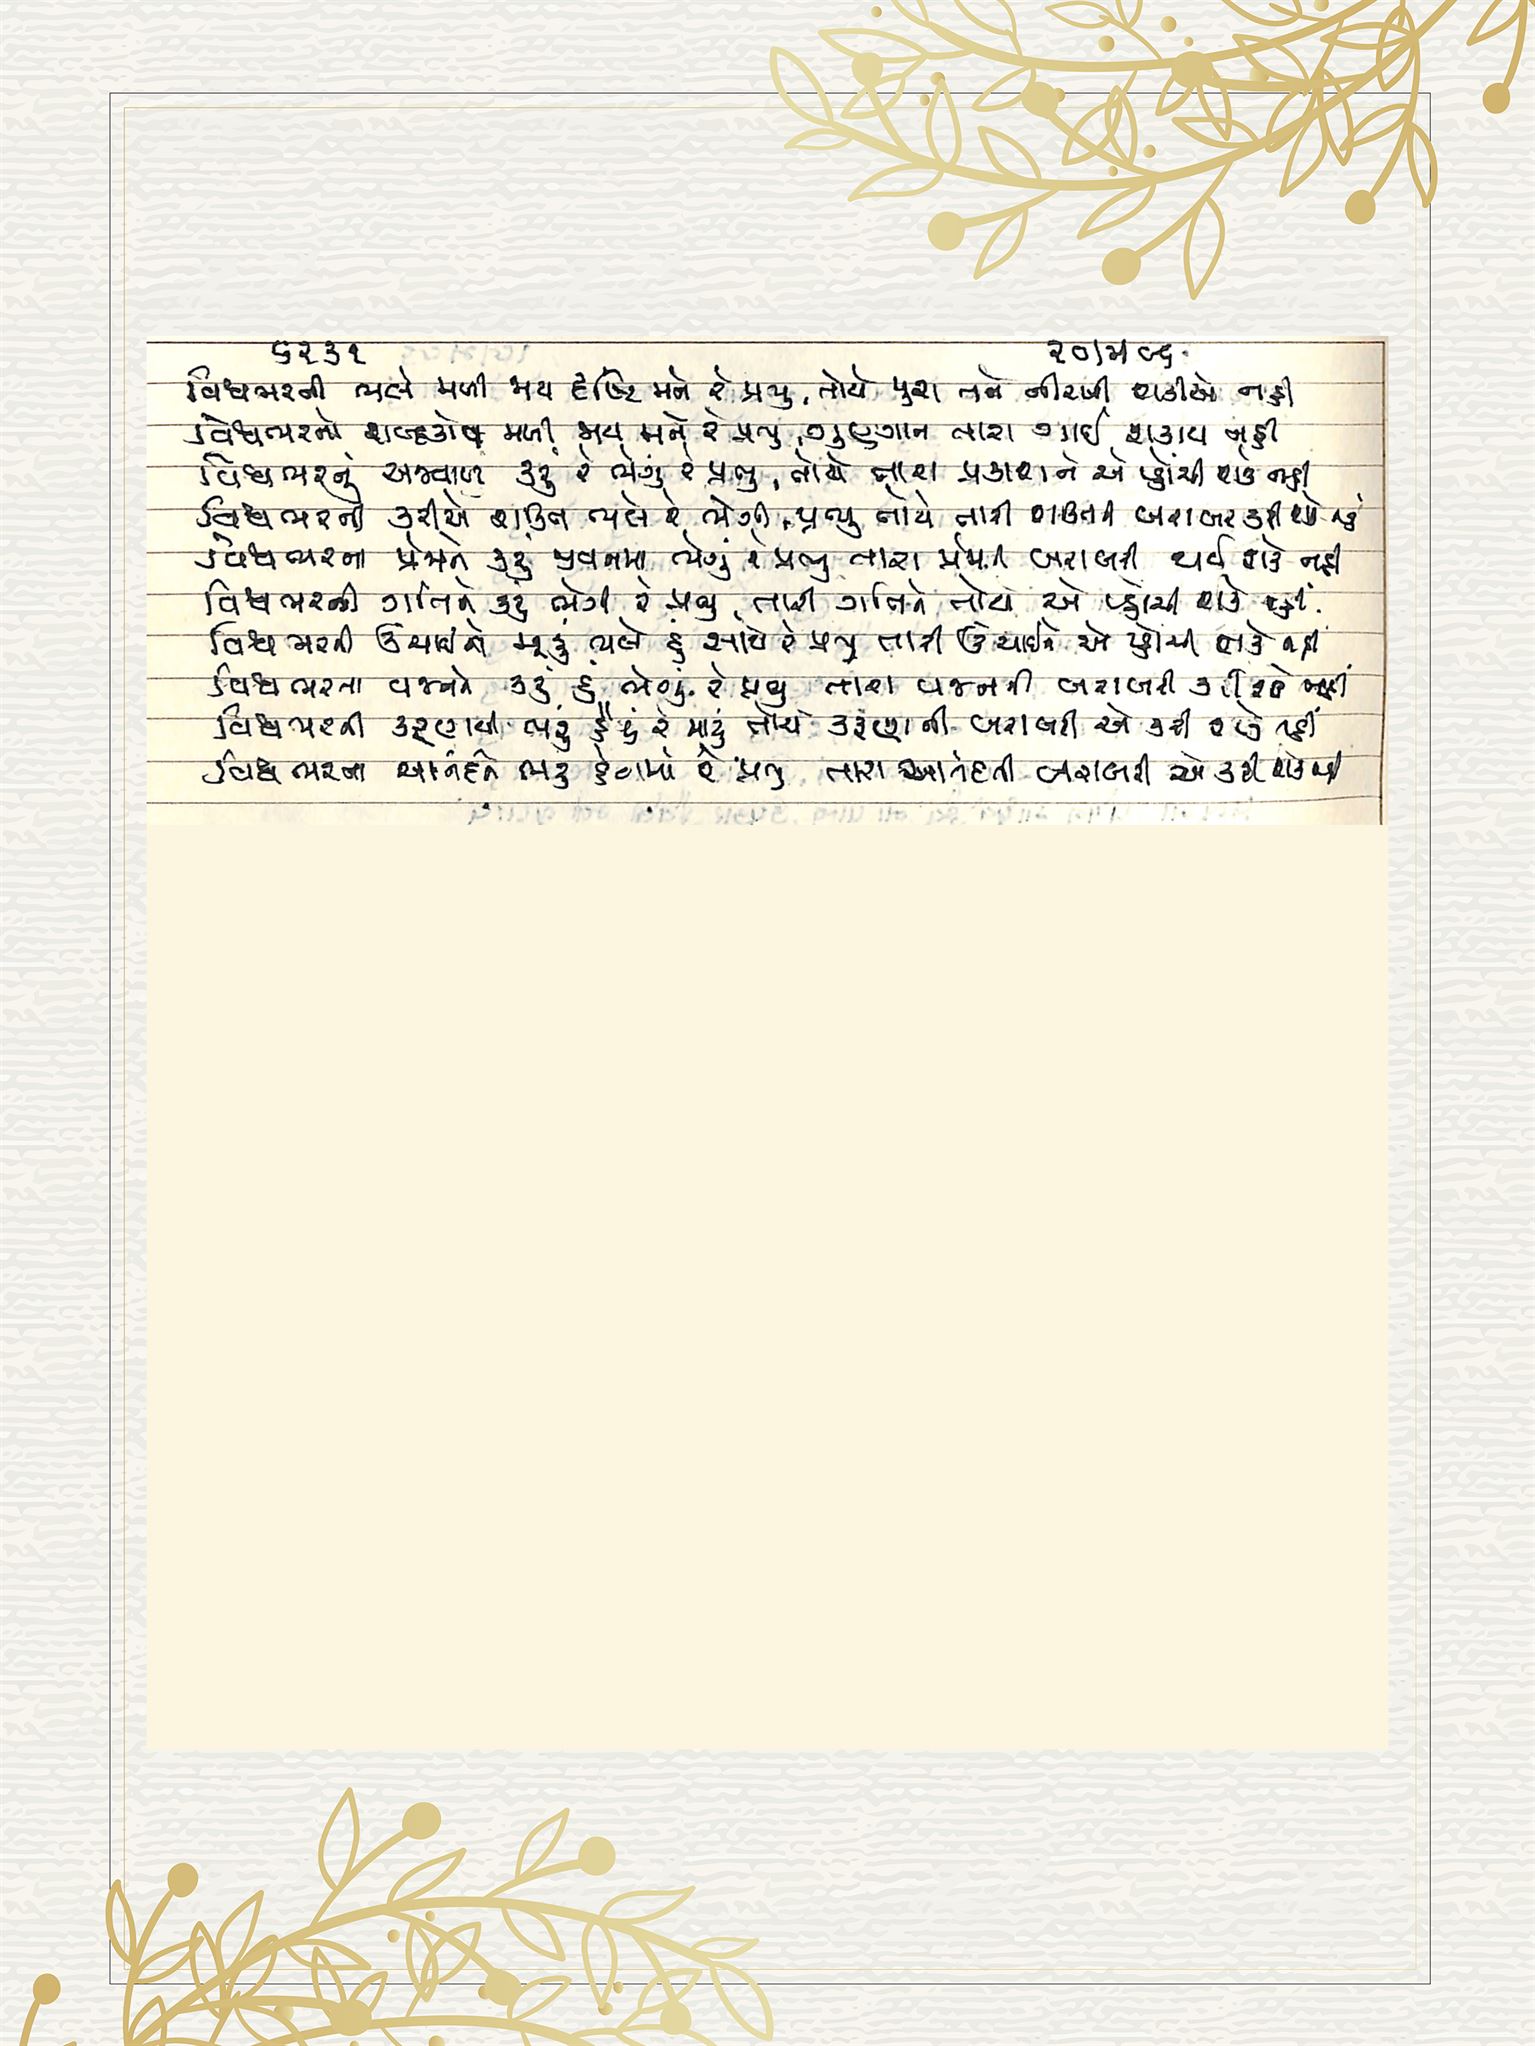 ૬૨૩૧
વિશ્વભરની ભલે મળી જાય દૃષ્ટિ મને રે પ્રભુ, તોયે પુરા તને નીરખી શકીએ નહી
વિશ્વભરનો શબ્દકોષ મળી જાય મને રે પ્રભુ, ગુણગાન તારા ગાઈ શકાય નહી
વિશ્વભરનું અજવાળુ કરું રે ભેગું રે પ્રભુ, તોયે તારા પ્રકાશને એ પ્હોંચી શકે નહી
વિશ્વભરની કરીએ ભલે રે ભેગી, પ્રભુ તોયે તારી બરાબર કરી શકે
વિશ્વભરના પ્રેમને કરું જીવનમાં ભેગું રે પ્રભુ તારા પ્રેમની બરાબરી થઈ શકે નહી
વિશ્વભરની ગતિને કરું ભેગી રે પ્રભુ, તારી ગતિને તોયે એ પ્હોંચી શકે નહીં.
વિશ્વભરની ઉંચાઈને ભલે હું સાથે રે પ્રભુ તારી ઉંચાઈને એ પ્હોંચી શકે નહી
વિશ્વભરના વજનને કરું હું ભેગું રે પ્રભુ તારા વજનની બરાબરી કરી શકે નહીં
વિશ્વભરની કરૂણાથી ભરું હૈયું રે મારું તોયે કરૂણાની બરાબરી એ કરી શકે નહીં
વિશ્વભરના આનંદને ભરું હૈયામાં રે પ્રભુ તારા આનંદની બરાબરી એ કરી શકે નહી